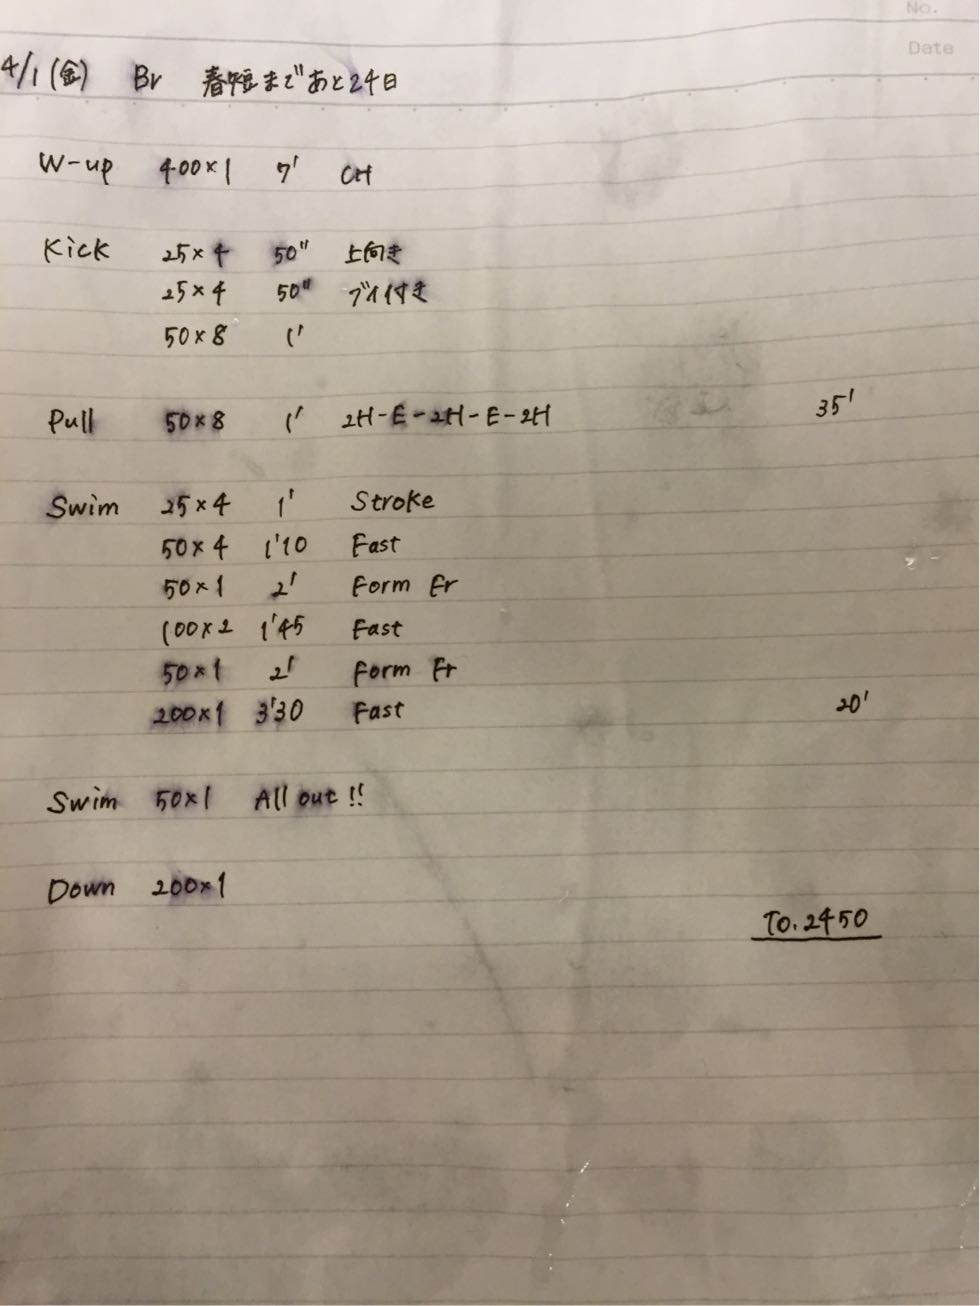 No.
Date
4/1(金) Br 春短まであと24日
W-up 400×1 7' CH
Kick 25×4 50" 上向き
25×4 50" ブイ付き
50×8 1'
Pull 50×8 1' 2H-E-2H-E-2H 35'
Swim 25×4 1' Stroke
50×4 1'10 Fast
50×1 2' Form Fr
100×2 1'45 Fast
50×1 2' Form Fr
200×1 3'30 Fast 20'
Swim 50×1 All out!!
Down 200×1
To.2450